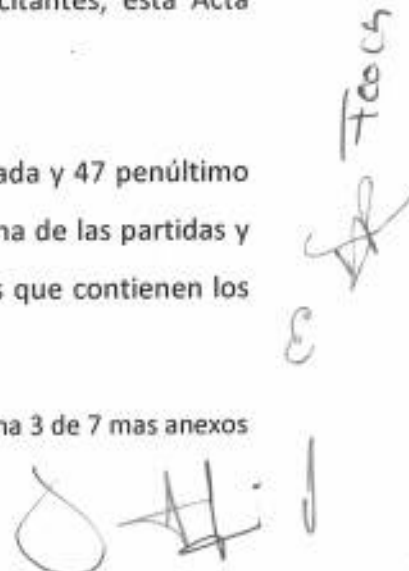 citantes, esta Acta
ada y 47 penúltimo
na de las partidas y
s que contienen los
na 3 de 7 mas anexos